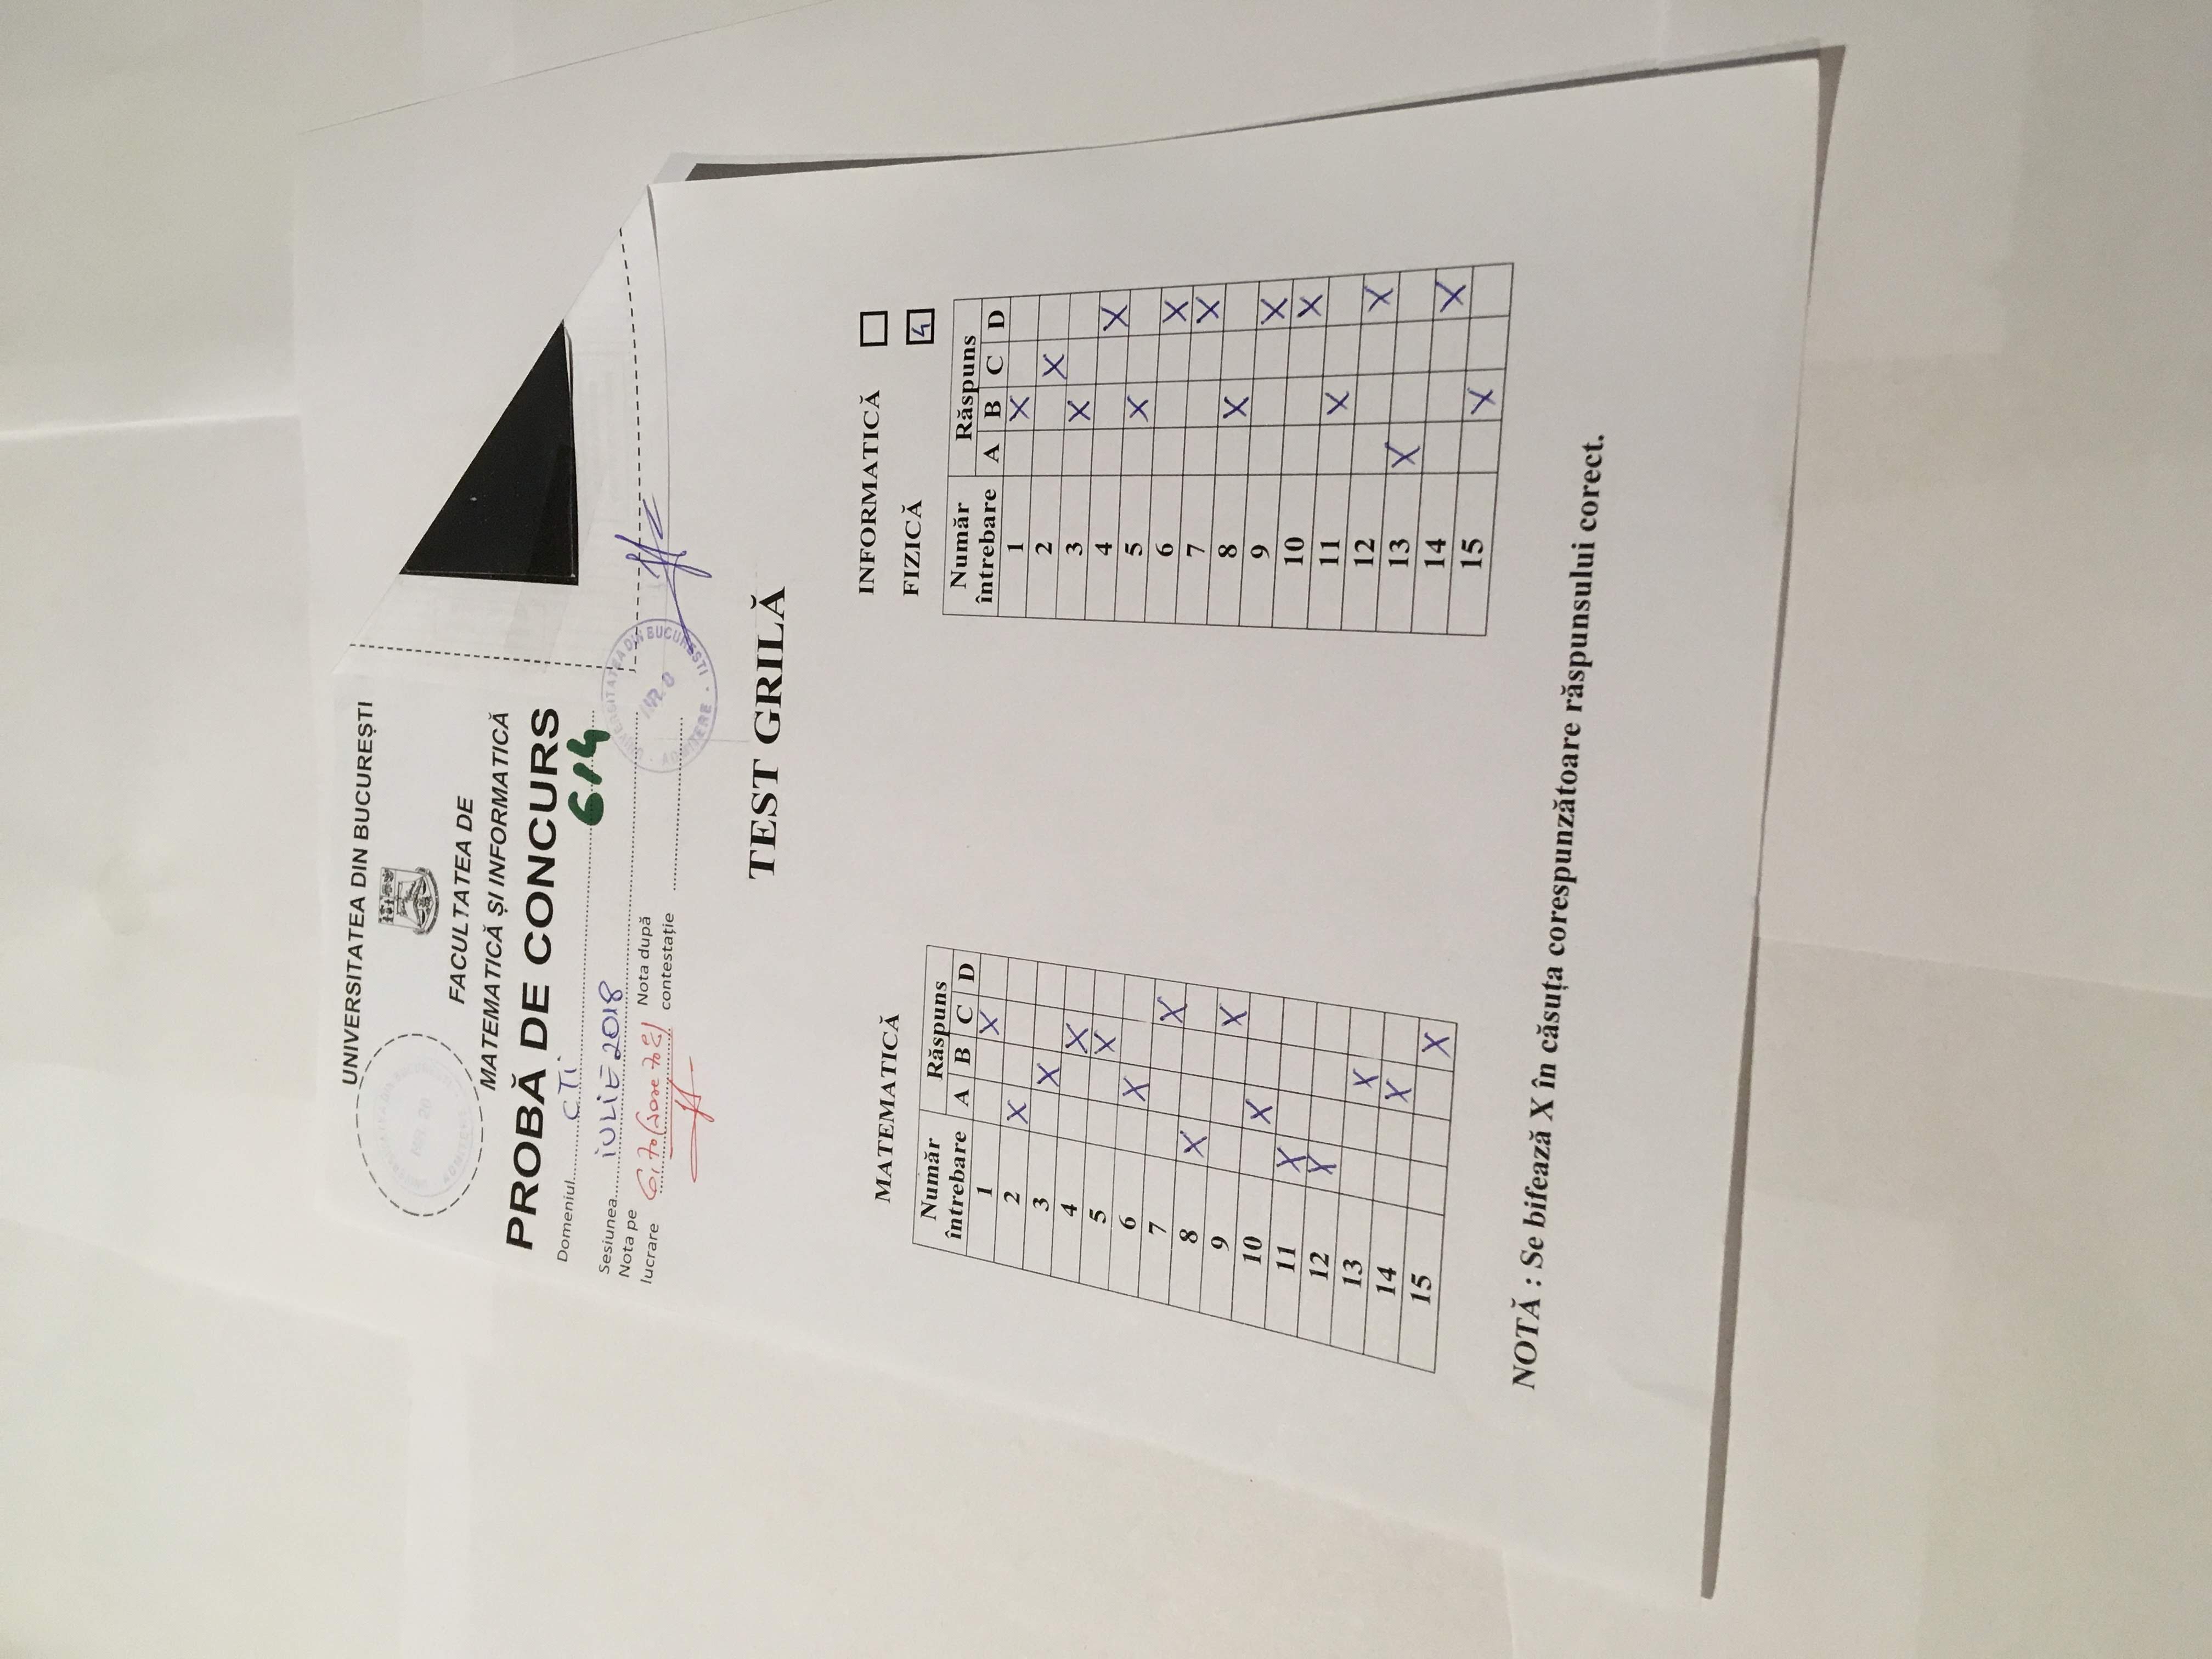 UNIVERSITATEA DIN BUCUREȘTI
FACULTATEA DE
MATEMATICĂ ȘI INFORMATICĂ
PROBĂ DE CONCURS
Domeniul CTi
614
Sesiunea iULiE 2018
Nota pe lucrare 6,70 (șase 70%)
Nota după contestație
UNIVERSITATEA DIN BUCUREȘTI ADMITERE
TEST GRILĂ
MATEMATICĂ
Număr întrebare Răspuns
A B C D
1 X
2 X
3 X
4 X
5 X
6 X
7 X
8 X
9 X
10 X
11 X
12 X
13 X
14 X
15 X
INFORMATICĂ
FIZICĂ 4
Număr întrebare Răspuns
A B C D
1 X
2 X
3 X
4 X
5 X
6 X
7 X
8 X
9 X
10 X
11 X
12 X
13 X
14 X
15 X
NOTĂ : Se bifează X în căsuța corespunzătoare răspunsului corect.